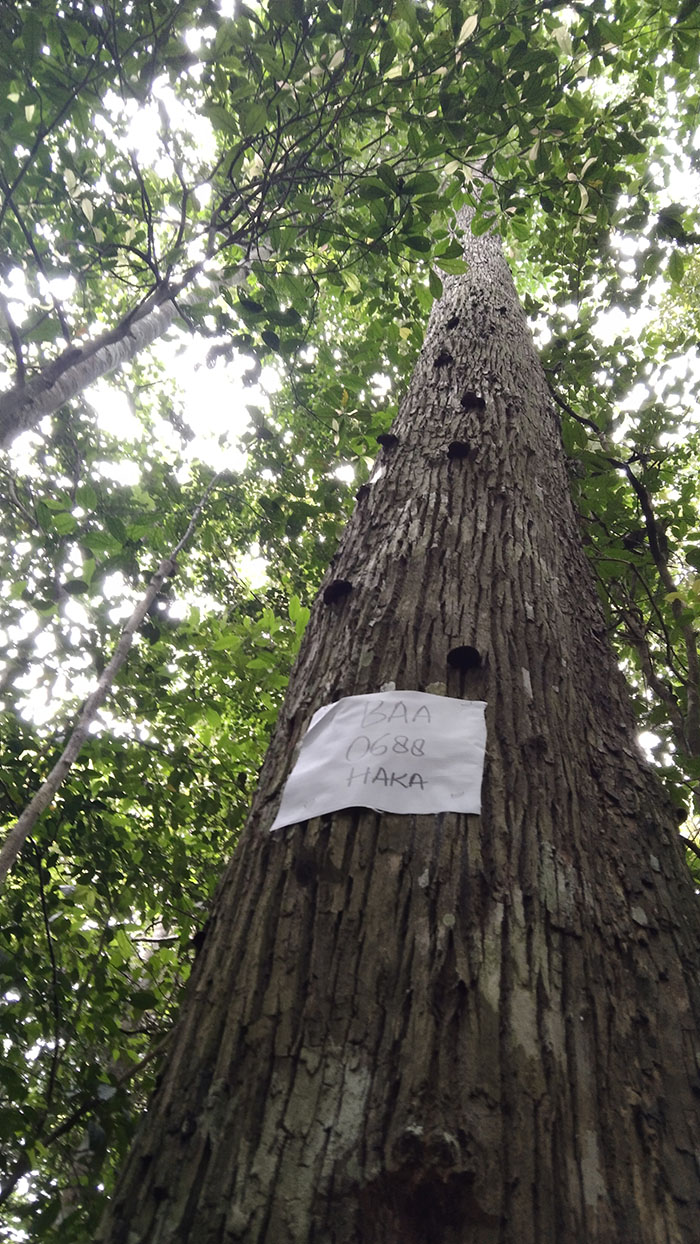 BAA
0688
HAKA